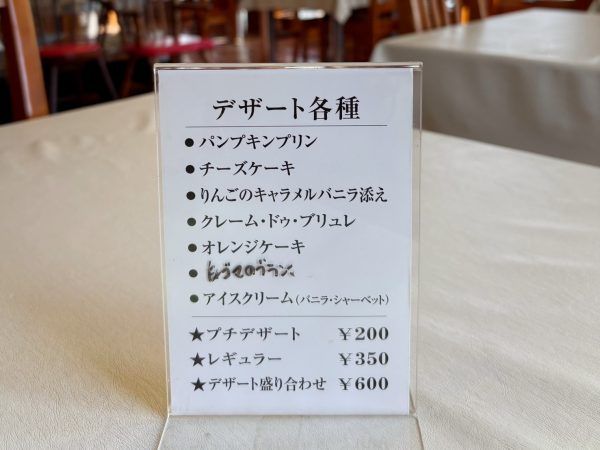 デザート各種
●パンプキンプリン
●チーズケーキ
●りんごのキャラメルバニラ添え
●クレーム・ドゥ・ブリュレ
●オレンジケーキ
●
●アイスクリーム(バニラ・シャーベット)
★プチデザート ¥200
★レギュラー ¥350
★デザート盛り合わせ ¥600